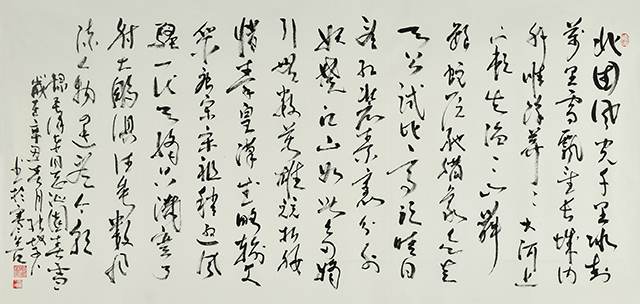 北国风光千里冰封
万里雪飘望长城内
外惟馀莽々大河上
下顿失滔々山舞
银蛇原驰蜡象欲与
天公试比高须晴日
看红装素裹分外
妖娆江山如此多娇
引无数英雄竞折腰
惜秦皇汉武略输文
采唐宗宋祖稍逊风
骚一代天骄只识弯弓
射大雕俱往矣数风
流人物还看今朝
录毛泽东同志沁园春雪
岁在辛丑春月
书于